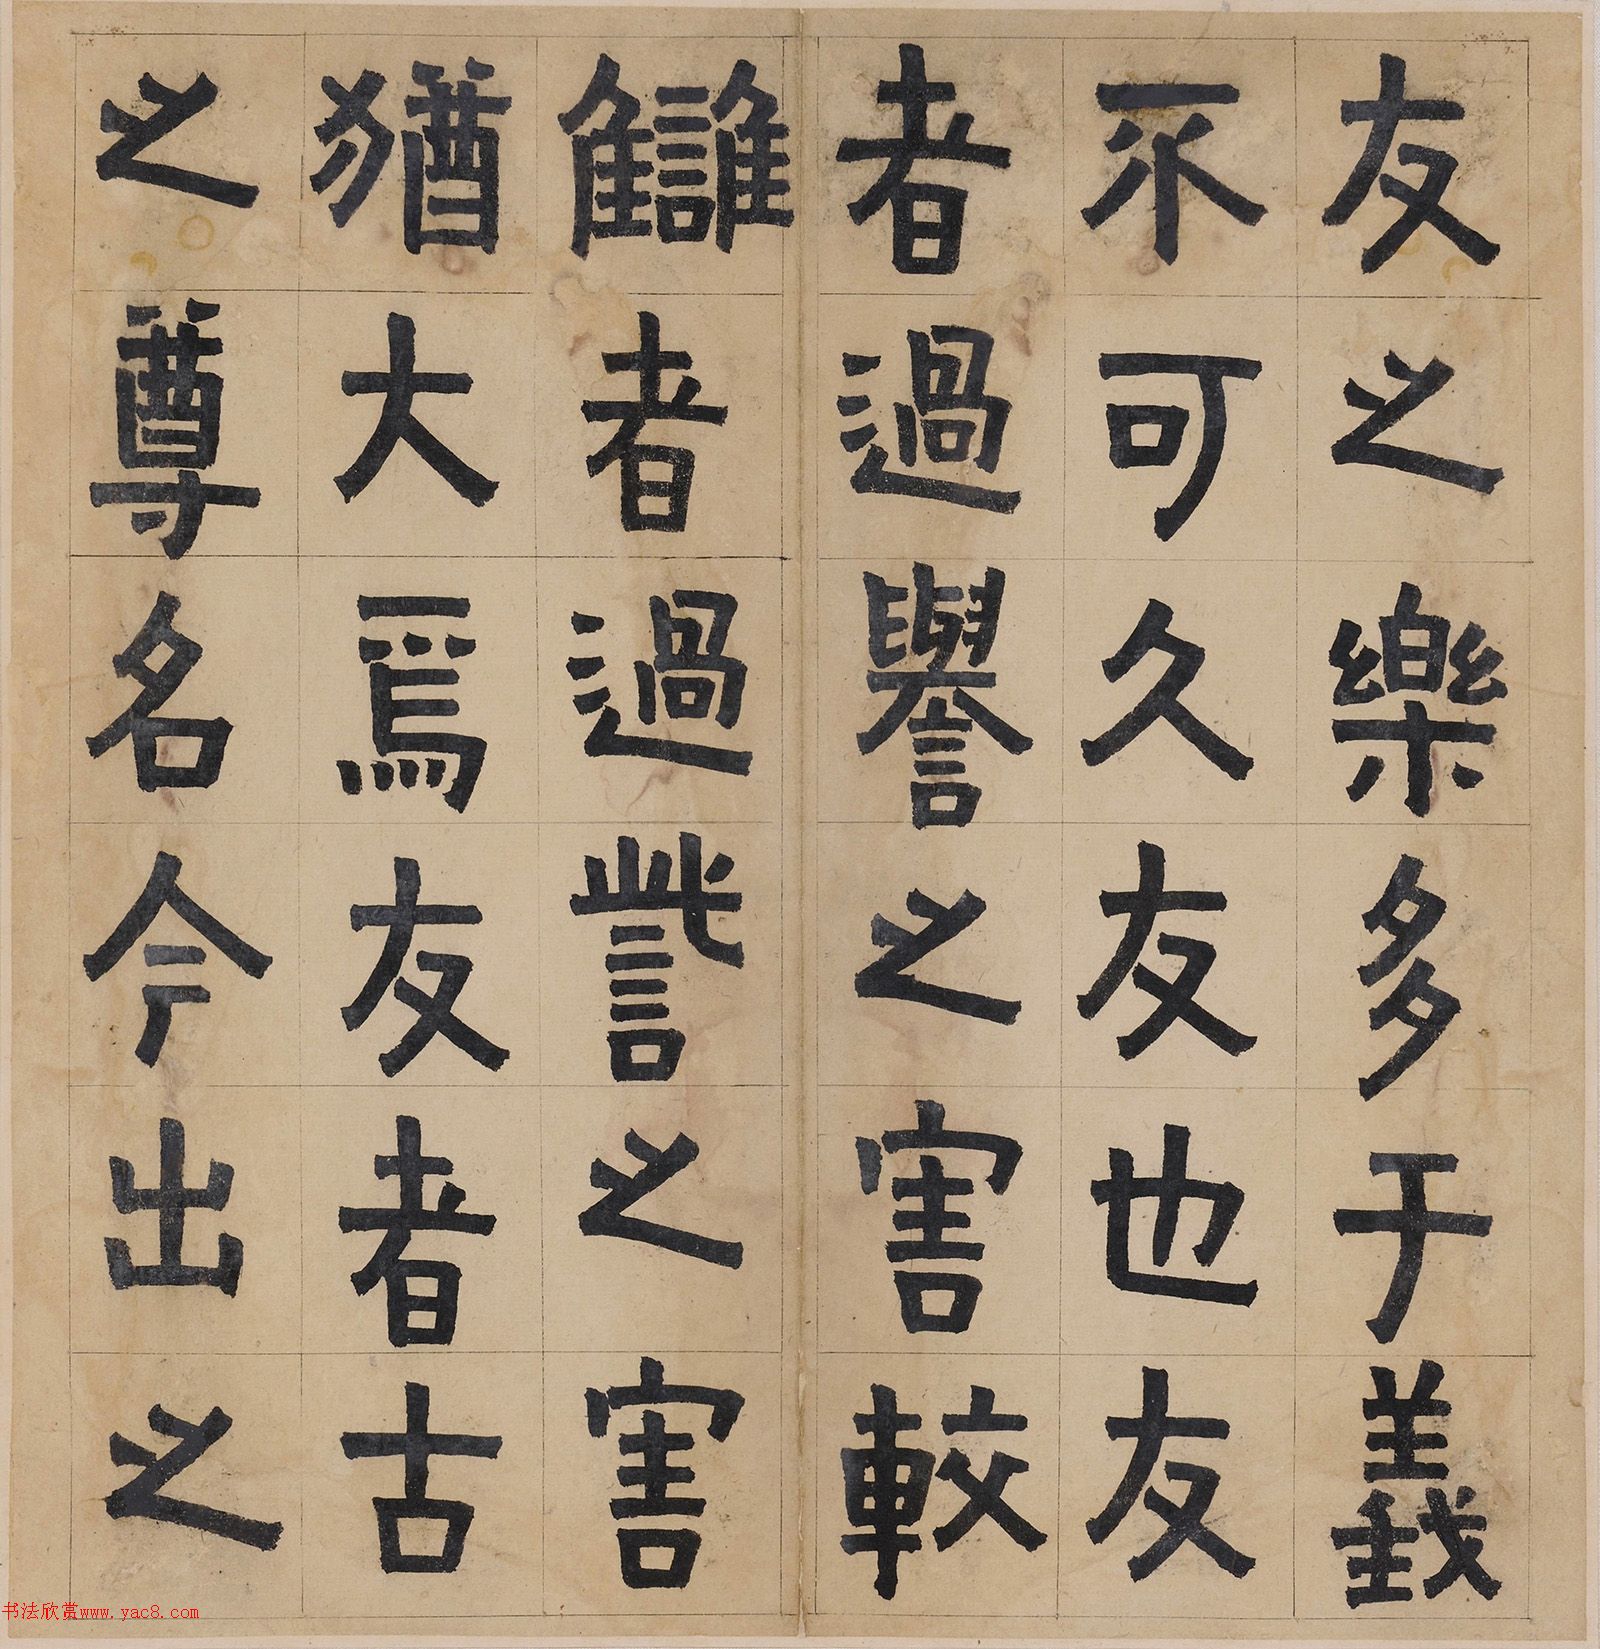 友之樂多于義
不可久友也友
者過譽之害較
讎者過訾之害
猶大焉友者古
之尊名今出之
书法欣赏www.yac8.com